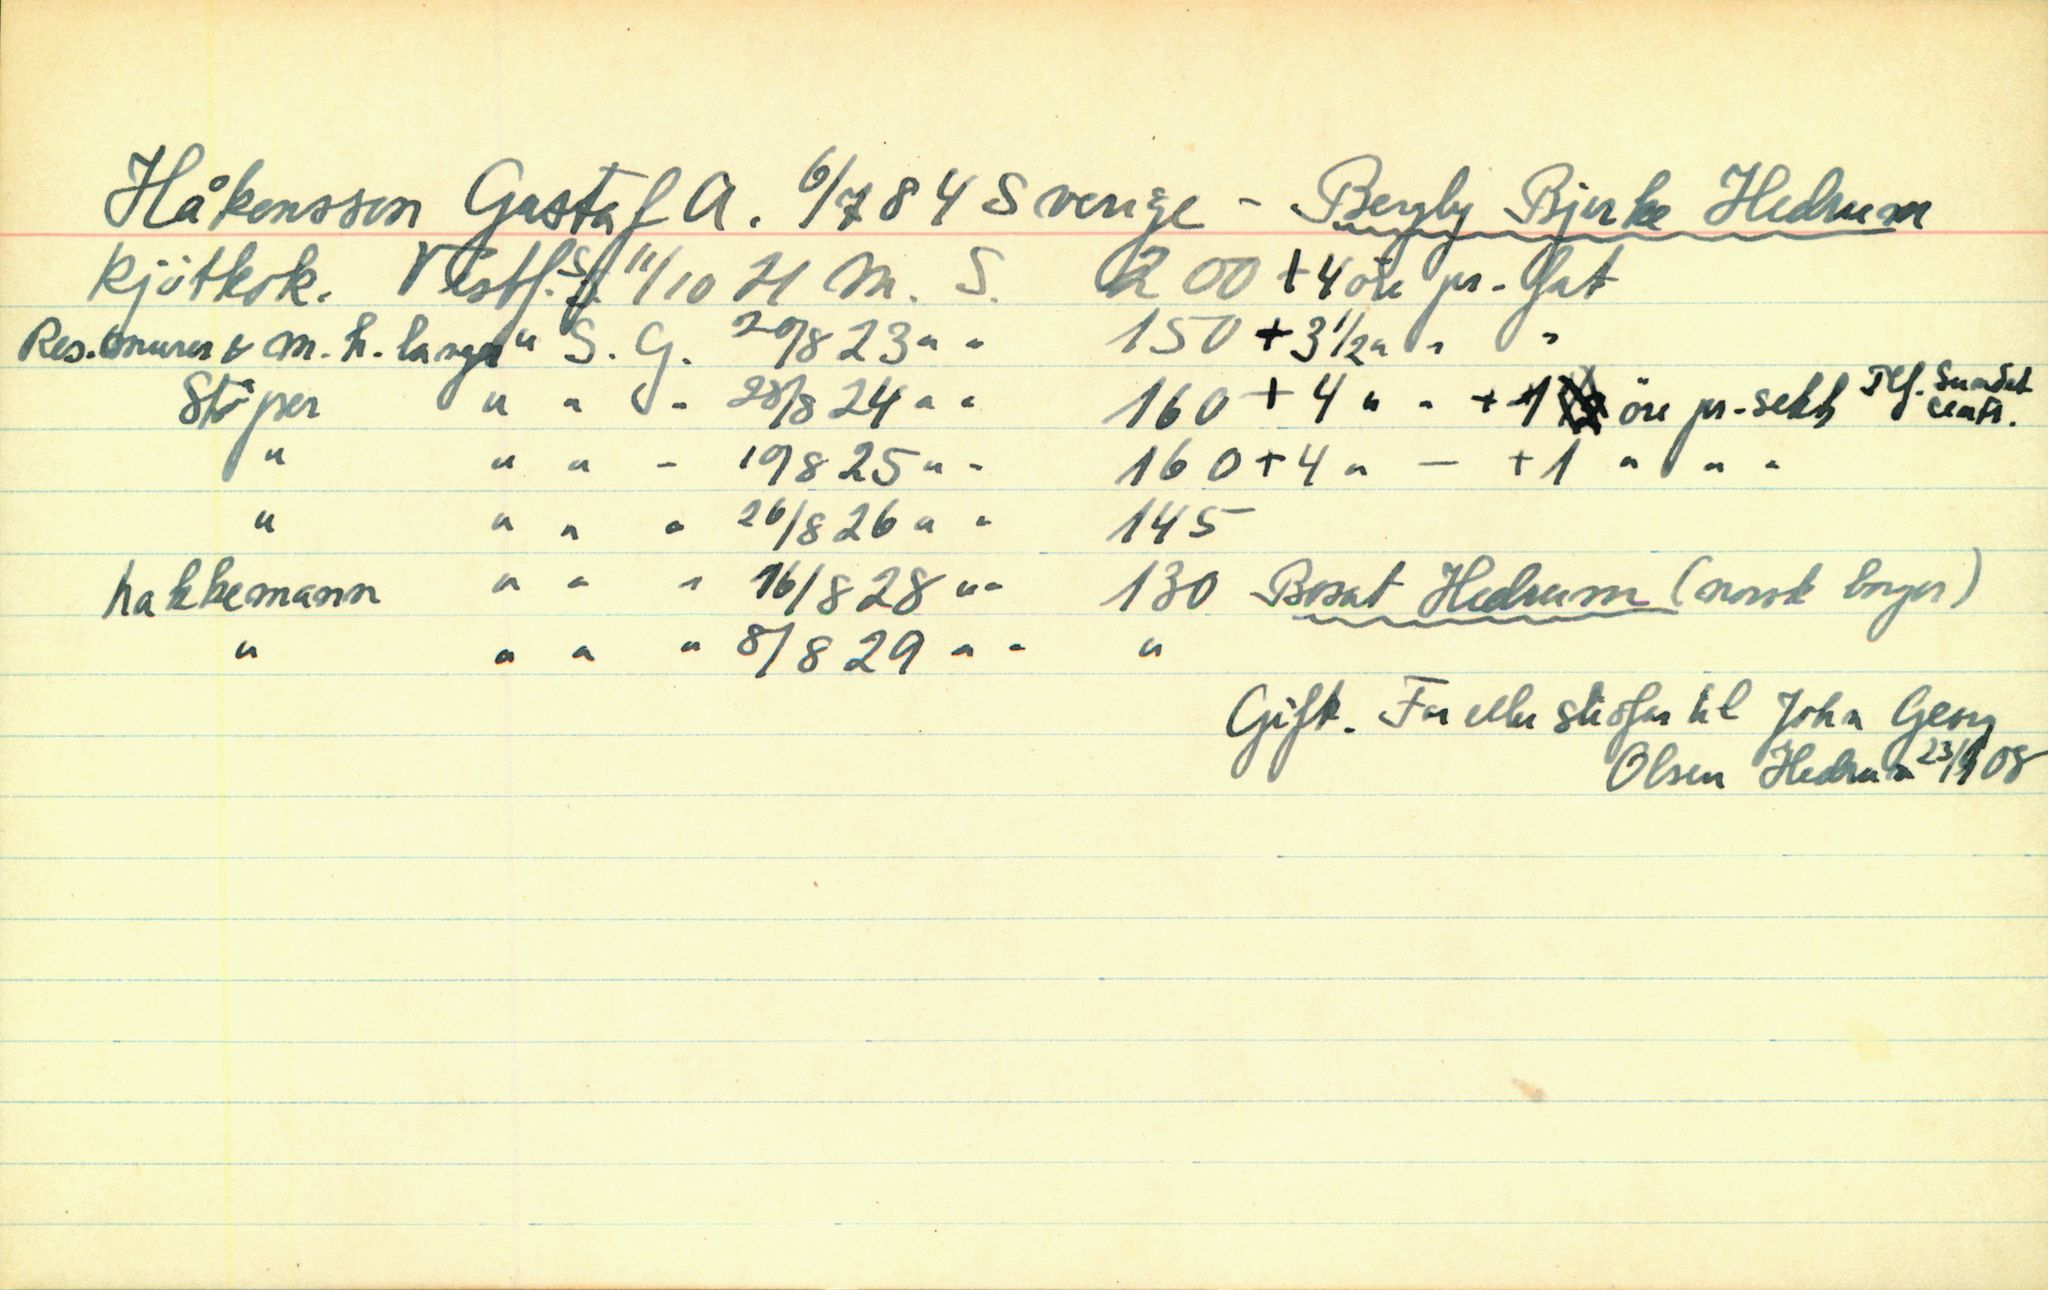 Håkonsson Gustaf A. 6/7 84 Sverige - Bergby Bjerke Hedrum
Kjøtkok. Vestf. S.G. 11/10 21 M. S. 200 + 4 öre pr. fat
Res. murer & m. h. langer " S. G. 20/8 23 " " 150 + 3 1/2 " " "
Støper " " " 28/8 24 " " 160 + 4 " " + 1 öre pr. sekk Tlf. Sundet centr.
" " " - 19/8 25 " " 160 + 4 " — + 1 " " "
" " " " 26/8 26 " " 145
hakkemann " " " 16/8 28 " " 130 Bosat Hedrum (norsk borger)
" " " " 8/8 29 " " "
Gift. Far eller stefar til John Georg
Olsen Hedrum 08